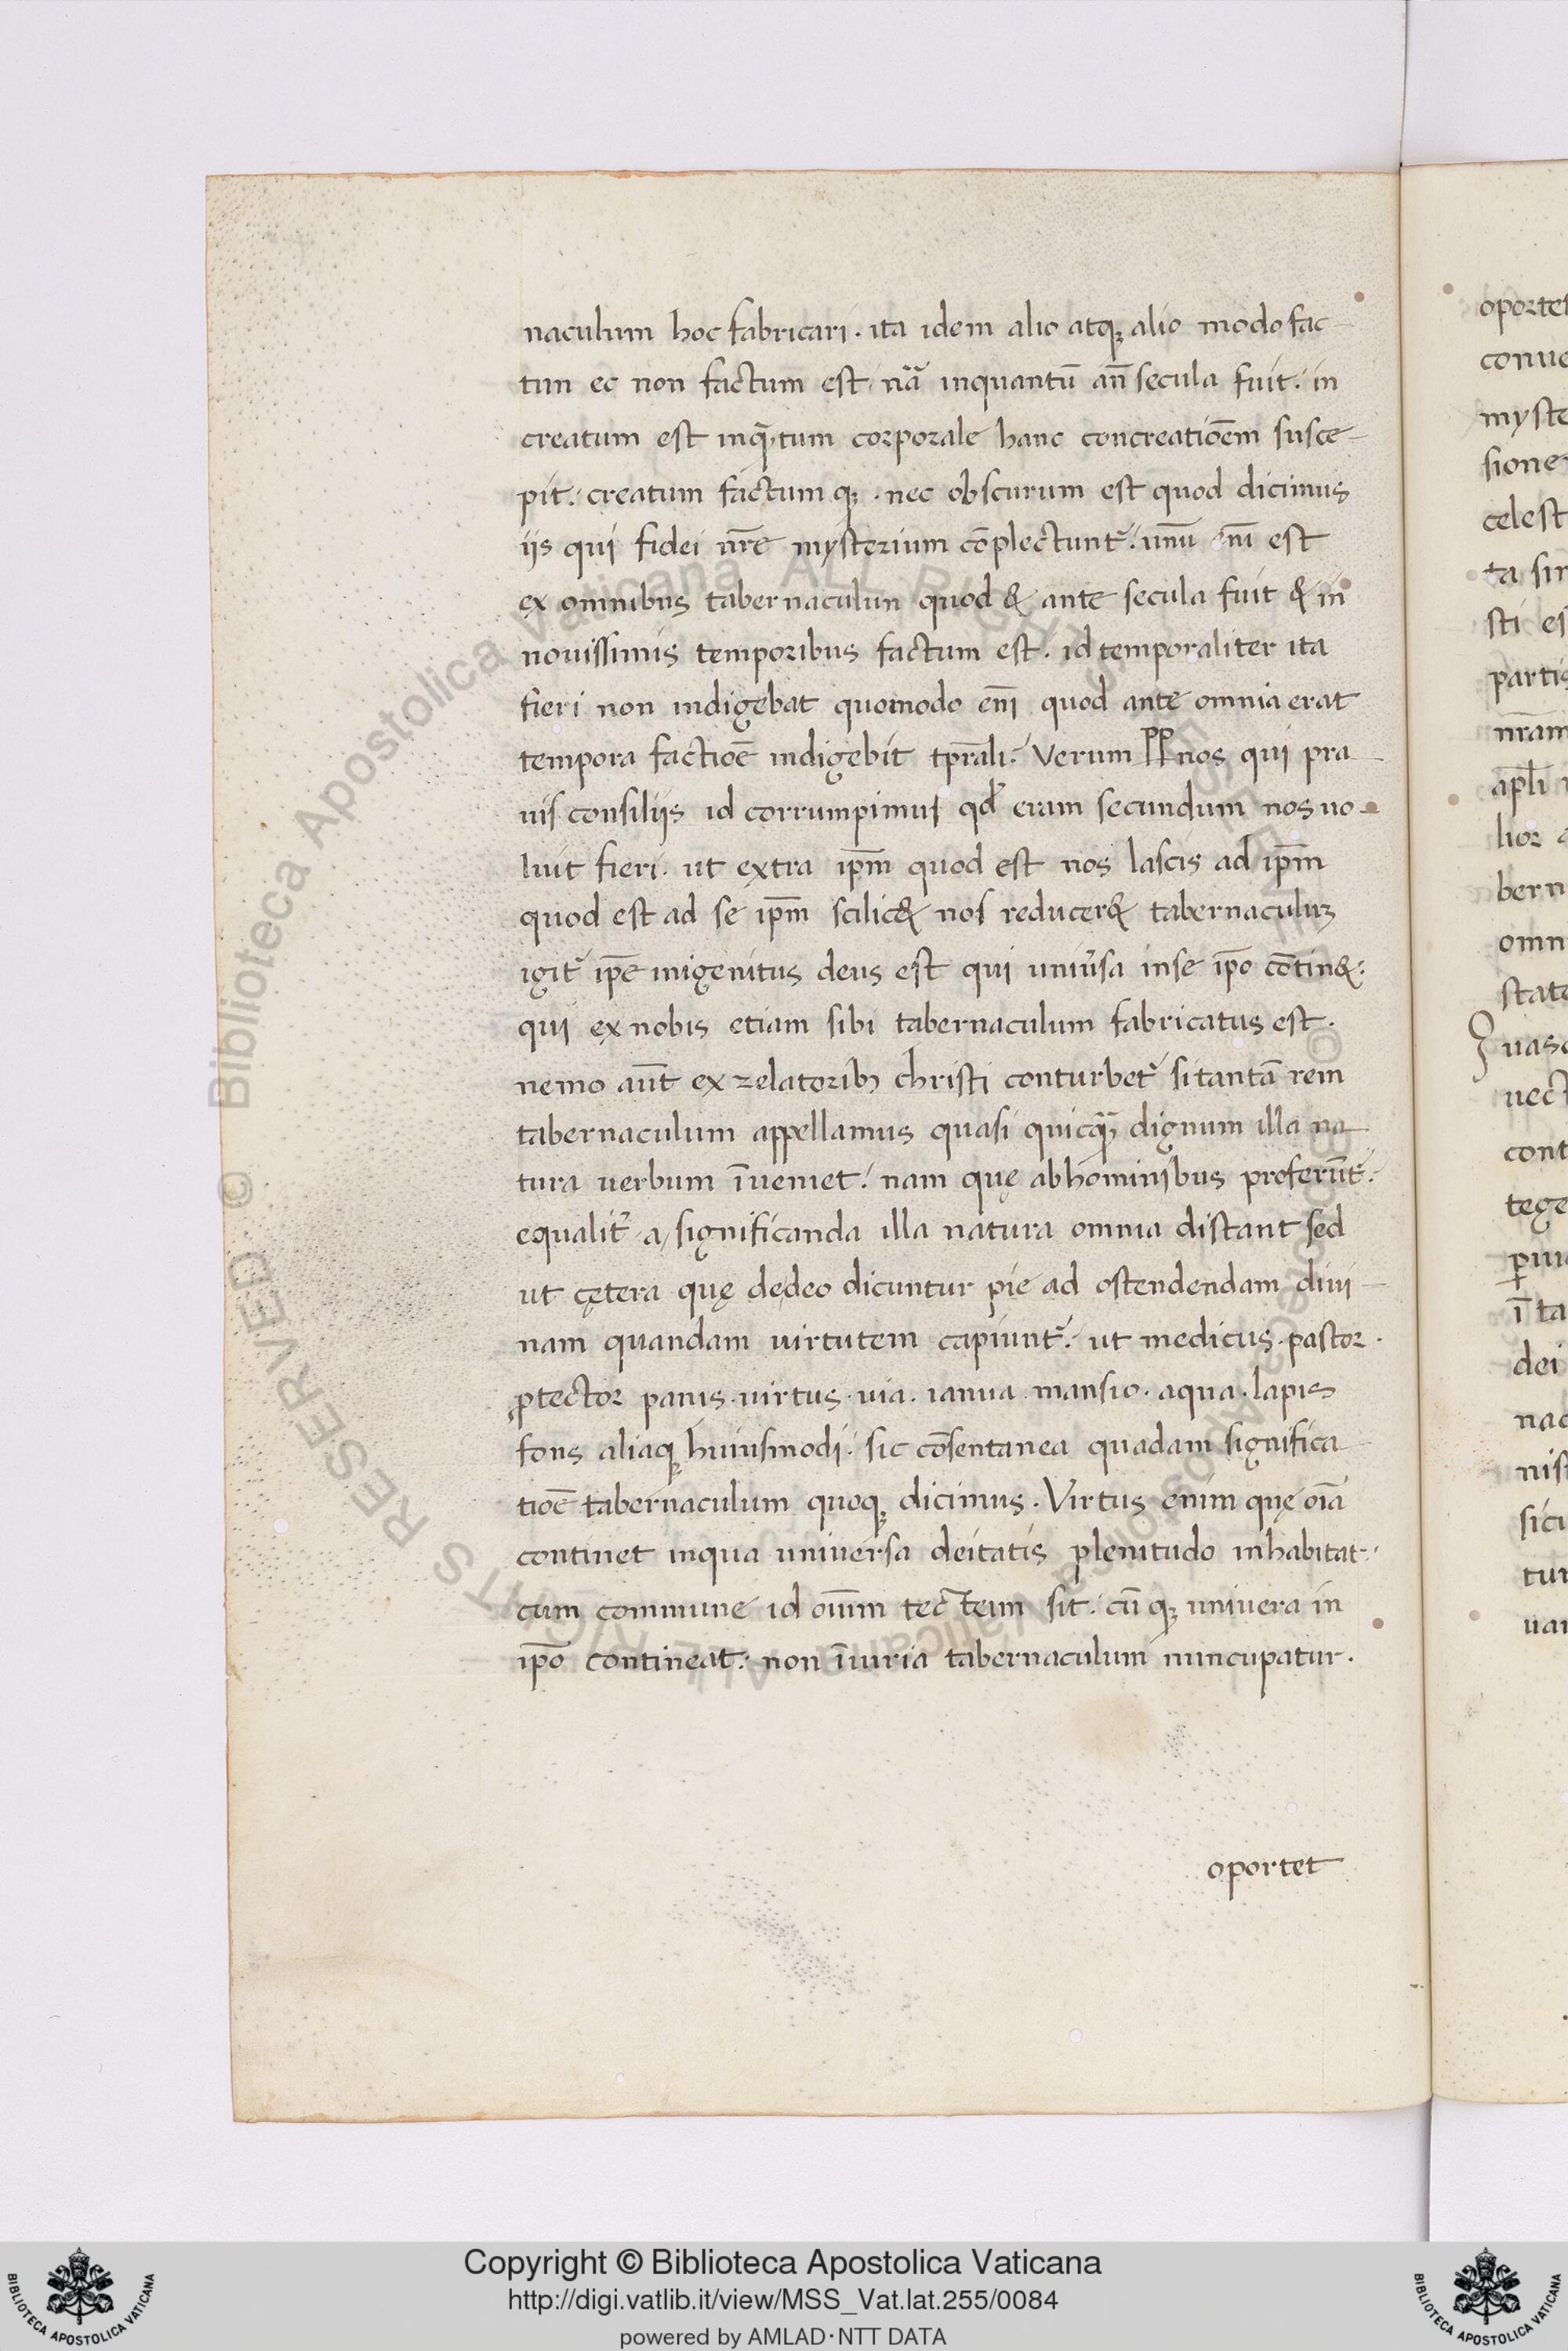 naculum hoc fabricari. ita idem alio atqꝫ alio modo fac-
tun ec non factum est. nã inquantũ añ secula fuit. in
creatum est inq̃tum corporale hanc concreatiõem susce-
pit. creatum factum qꝫ. nec obscurum est quod dicimus
iis qui fidei nr̃e mysterium cõplectunt᷑. unũ em̃ est
ex omnibus tabernaculun quod & ante secula fuit & in
nouissimis temporibus factum est. id temporaliter ita
fieri non indigebat quomodo em̃ quod ante omnia erat
tempora factiõe indigebit tp̃rali. Verum PP nos qui pra-
uis consiliis id corrumpimus qd̛ eram secundum nos uo-
luit fieri. ut extra ip̃m quod est nos lascis ad ip̃m
quod est ad se ip̃m scilic& nos reducer& tabernaculuꝫ
igit᷑ ip̃e inigenitus deus est qui uniũsa inse ip̃o cõtin&.
qui ex nobis etiam sibi tabernaculum fabricatus est.
nemo aũt ex zelatoribꝫ christi conturbet᷑ si tantã rem
tabernaculum appellamus quasi quicq̃ dignum illa na-
tura uerbum ĩueniet. nam quę abhominibus proferũt.
equalit᷑ a significanda illa natura omnia distant sed
ut cętera quę dędeo dicuntur pie ad ostendendam diui-
nam quandam uirtutem capiunt᷑. ut medicus. pastor.
ꝓtector panis. uirtus. uia. ianua. mansio. aqua. lapis
fons aliaqꝫ huiusmodi. sic cõsentanea quadam significa-
tiõe tabernaculum quoqꝫ dicimus. Virtus enim quę oĩa
continet inqua universa deitatis plenitudo inhabitat.
cum commune id oĩum tec̃teim sit. cũ qꝫ univera in
ip̃o contineat. non ĩiuria tabernaculum nuncupatur.
oportet
oportet
conue
myste
sione
celest
ta sin
sti es
partis
nr̃am
apl̃i
lior
bern
omn
state
uas
uect
cont
tege
ꝑui
ĩ ta
dei
nac
nis
sicu
tur
uar
© Biblioteca Apostolica Vaticana ALL RIGHTS RESERVED
Copyright © Biblioteca Apostolica Vaticana
http://digi.vatlib.it/view/MSS_Vat.lat.255/0084
powered by AMLAD·NTT DATA
BIBLIOTECA APOSTOLICA VATICANA
BIBLIOTECA APOSTOLICA VATICANA